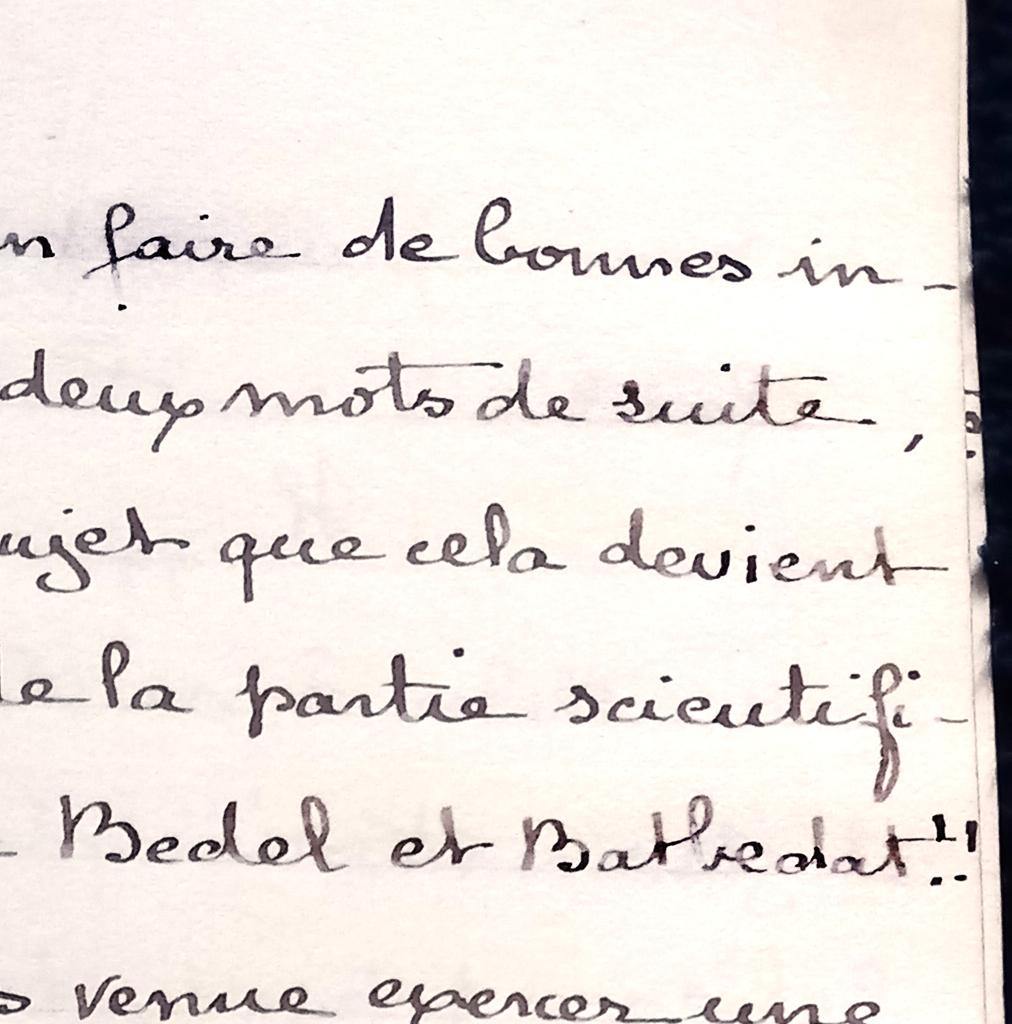 n faire de bonnes in-
deux mots de suite,
ujet que cela devient
e la partie scientifi-
- Bedel et Bathedat!!
s venue exercer une